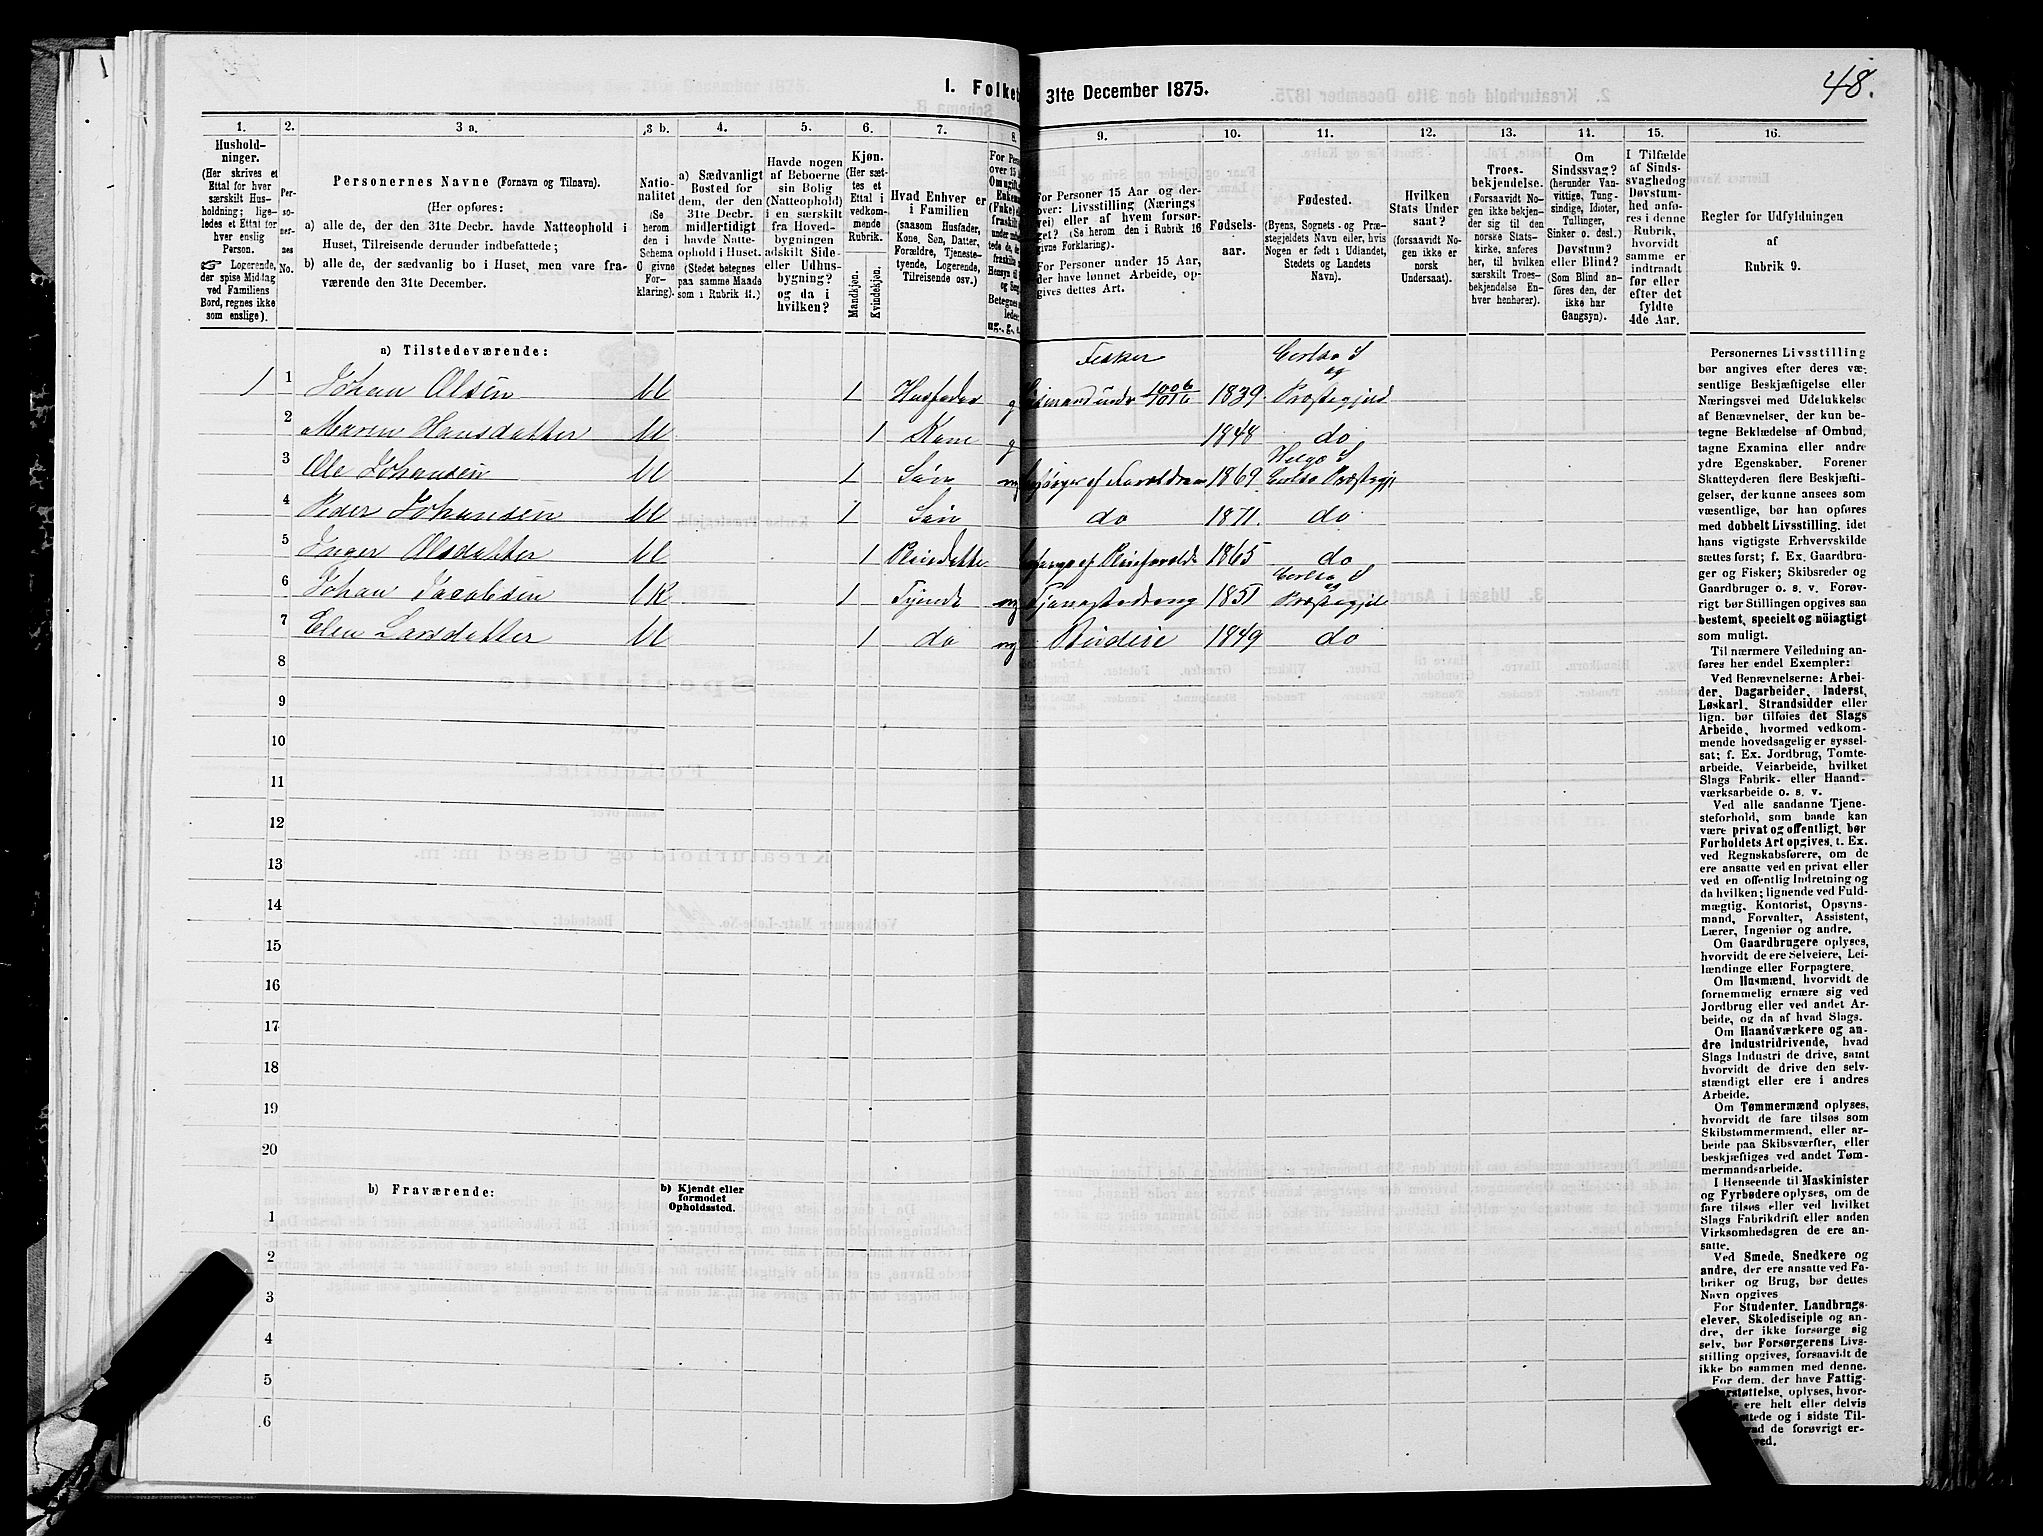 48.
1. Folket 31te December 1875.
1. 2. 3 a. 3 b. 4. 5. 6. 7. 8. 9. 10. 11. 12. 13. 14. 15. 16.
Hushold-
ninger.
(Her skrives et
Ettal for hver
særskilt Hus-
holdning; lige-
ledes et Ettal for
hver enslig
Person.
☞ Logerende,
der spise Middag
ved Familiens
Bord, regnes ikke
som enslige).
Per-
so-
ner-
nes
No.
Personernes Navne (Fornavn og Tilnavn).
(Her opføres:
a) alle de, der den 31te Decbr. havde Natteophold i
Huset, Tilreisende derunder indbefattede;
b) alle de, der sædvanlig bo i Huset, men vare fra-
værende den 31te December.
Natio-
nalitet
(Se
herom
den i
Schema
C givne
For-
klaring).
a) Sædvanligt
Bosted for
dem, der den
31te Decbr.
midlertidigt
havde Natte-
ophold i Huset.
(Stedet betegnes
paa samme Maade
som i Rubrik 11.)
Havde nogen
af Beboerne
sin Bolig
(Natteophold)
i en særskilt
fra Hoved-
bygningen
adskilt Side-
eller Udhus-
bygning?
og da i
hvilken?
Kjøn.
(Her sæt-
tes et
Ettal i
vedkom-
mende
Rubrik.
Mandkjøn.
Kvindekjøn.
Hvad Enhver er
i Familien
(saasom Husfader,
Kone, Søn, Datter,
Forældre, Tjeneste-
tyende, Logerende,
Tilreisende osv.)
For Personer 15 Aar og der-
over: Livsstilling (Nærings-
vei) eller af hvem forsør-
get? (Se herom den i Rubrik 16
givne Forklaring).
For Personer under 15 Aar,
der have lønnet Arbeide, op-
gives dettes Art.
Fødsels-
aar.
Fødested.
(Byens, Sognets- og Præ-
stegjeldets Navn eller, hvis
Nogen er født i Udlandet,
Stedets og Landets
Navn).
Hvilken
Stats Under
saat?
(forsaavidt No-
gen ikke er
norsk
Undersaat).
Troes-
bekjendelse.
(Forsaavidt No-
gen ikke bekjen-
der sig til den
norske Stats-
kirke, anføres
her, til hvilken
særskilt Troes-
bekjendelse En-
hver henhører).
Om
Sindssvag?
(herunder Van-
vittige, Tung-
sindige, Idioter,
Tullinger,
Sinker o. desl.)
Døvstum?
eller Blind?
(Som Blind an-
føres den, der
ikke har
Gangsyn).
I Tilfælde
af Sinds-
svaghed og
Døvstum-
hed anfø-
res i denne
Rubrik,
hvorvidt
samme er
indtraadt
før eller
efter det
fyldte
4de Aar.
Regler for Udfyldningen
af
Rubrik 9.
a) Tilstedeværende:
Fisker
og
1 1 Johan Olsen 1 Husfader g 1839 Præstegjeld
2 Maren Hansdatter 1 Kone g 1848 do
3 Ole Johansen 1 Søn ug 1869
4 Peder Johansen 1 Søn do 1871 do
5 Inger Olsdatter 1 Pleiedatter 1865 do
og
6 Johan Jacobsen 1 Tyende ug Tjenestedreng 1851 Præstegjeld
7 Elen Larsdatter 1 do ug Budeie 1849 do
8
9
10
11
12
13
14
15
16
17
18
19
20
b) Fraværende:
b) Kjendt eller
formodet
Opholdssted.
1
2
3
4
5
6
Personernes Livsstilling
bør angives efter deres væ-
sentlige Beskjæftigelse eller
Næringsvei med Udelukkelse
af Benævnelser, der kun be-
tegne Beklædelse af Ombud,
tagne Examina eller andre
ydre Egenskaber. Forener
Skatteyderen flere Beskjæfti-
gelser, der kunne ansees som
væsentlige, bør han opføres
med dobbelt Livsstilling, idet
hans vigtigste Erhvervskilde
sættes først; f. Ex. Gaardbru-
ger og Fisker; Skibsreder og
Gaardbruger o. s. v. Forøv-
rigt bør Stillingen opgives saa
bestemt, specielt og nøiagtigt
som muligt.
Til nærmere Veiledning an-
føres her endel Exempler:
Ved Benævnelserne: Arbei-
der, Dagarbeider, Inderst,
Løskarl, Strandsidder eller
lign. bør tilføies det Slags
Arbeide, hvormed vedkom-
mende hovedsagelig er syssel-
sat; f. Ex. Jordbrug, Tomte-
arbeide, Veiarbeide, hvilket
Slags Fabrik- eller Haand-
værksarbeide o. s. v.
Ved alle saadanne Tjene-
steforhold, som baade kan
være privat og offentligt, bør
Forholdets Art opgives, t. Ex.
ved Regnskabsførere, om de
ere ansatte ved en privat eller
ved en offentlig Indretning og
da hvilken; lignende ved Fuld-
mægtig, Kontorist, Opsyns-
mand, Forvalter, Assistent,
Lærer, Ingeniør og andre.
Om Gaardbrugere oplyses,
hvorvidt de ere Selveiere, Lei-
lændinge eller Forpagtere.
Om Husmænd, hvorvidt de
fornemmelig ernære sig ved
Jordbrug eller ved andet Ar-
beide, og da af hvad Slags.
Om Haandværkere og an-
dre industridrivende, hvad
Slags Industri de drive, samt
hvorvidt de drive den selv-
stændigt eller ere i andres
Arbeide.
Om Tømmermænd oplyses,
hvorvidt de fare tilsøs som
Skibstømmermænd, eller ar-
beide paa Skibsværfter, eller
beskjæftiges ved andet Tøm-
mermandsarbeide.
I Henseende til Maskinister
og Fyrbødere oplyses, om de
fare tilsøs eller ved hvilket
Slags Fabrikdrift eller anden
Virksomhedsgren de ere an-
satte.
Ved Smede, Snedkere og
andre, der ere ansatte ved Fa-
briker og Brug, bør dettes
Navn opgives
For Studenter, Landbrugs-
elever, Skoledisciple og an-
dre, der ikke forsørge sig
selv, bør Forsørgerens Livs-
stilling opgives, forsaavidt de
ikke bo sammen med denne.
For dem, der have Fattig-
oplyses, hvor-
ere helt eller delvis
og i sidste Til-
de forøvrigt er-